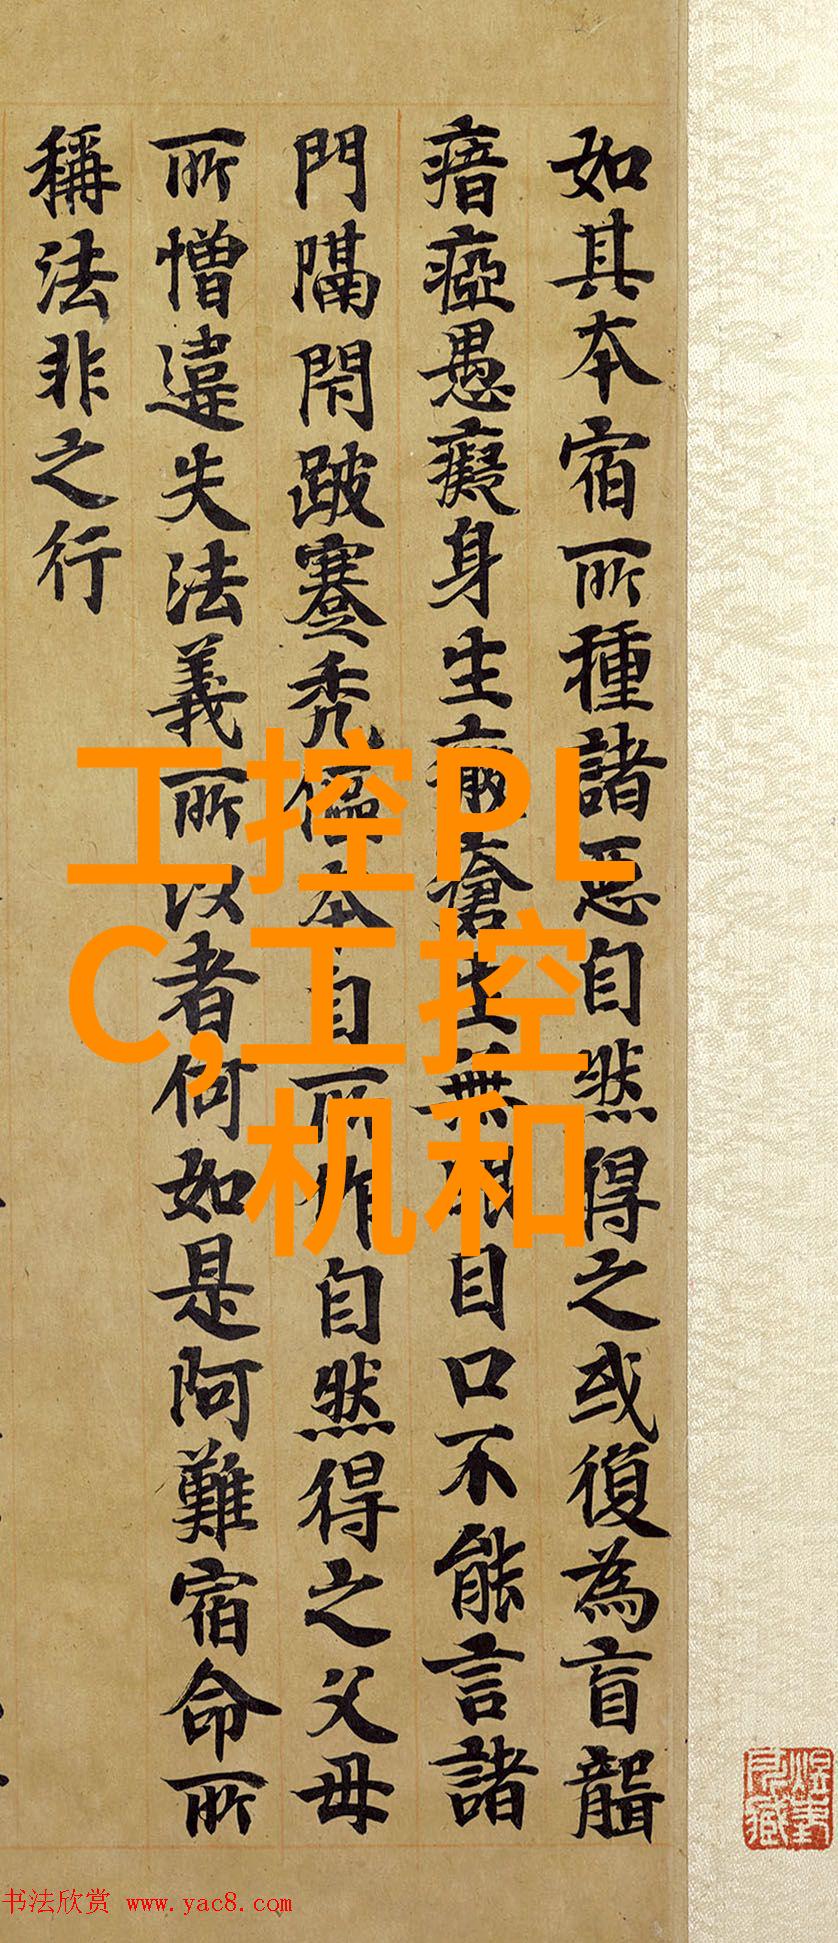 如其本宿所種諸惡自然得之或復為盲聾
瘖瘂愚癡身生瘡生無眼目口不能言諸
門隔閇跛蹇禿傴本自所作自然得之父母
所憎違失法義所以者何如是阿難宿命所
稱法非之行
工控PL
C,工控
机和
书法欣赏 www.yac8.com